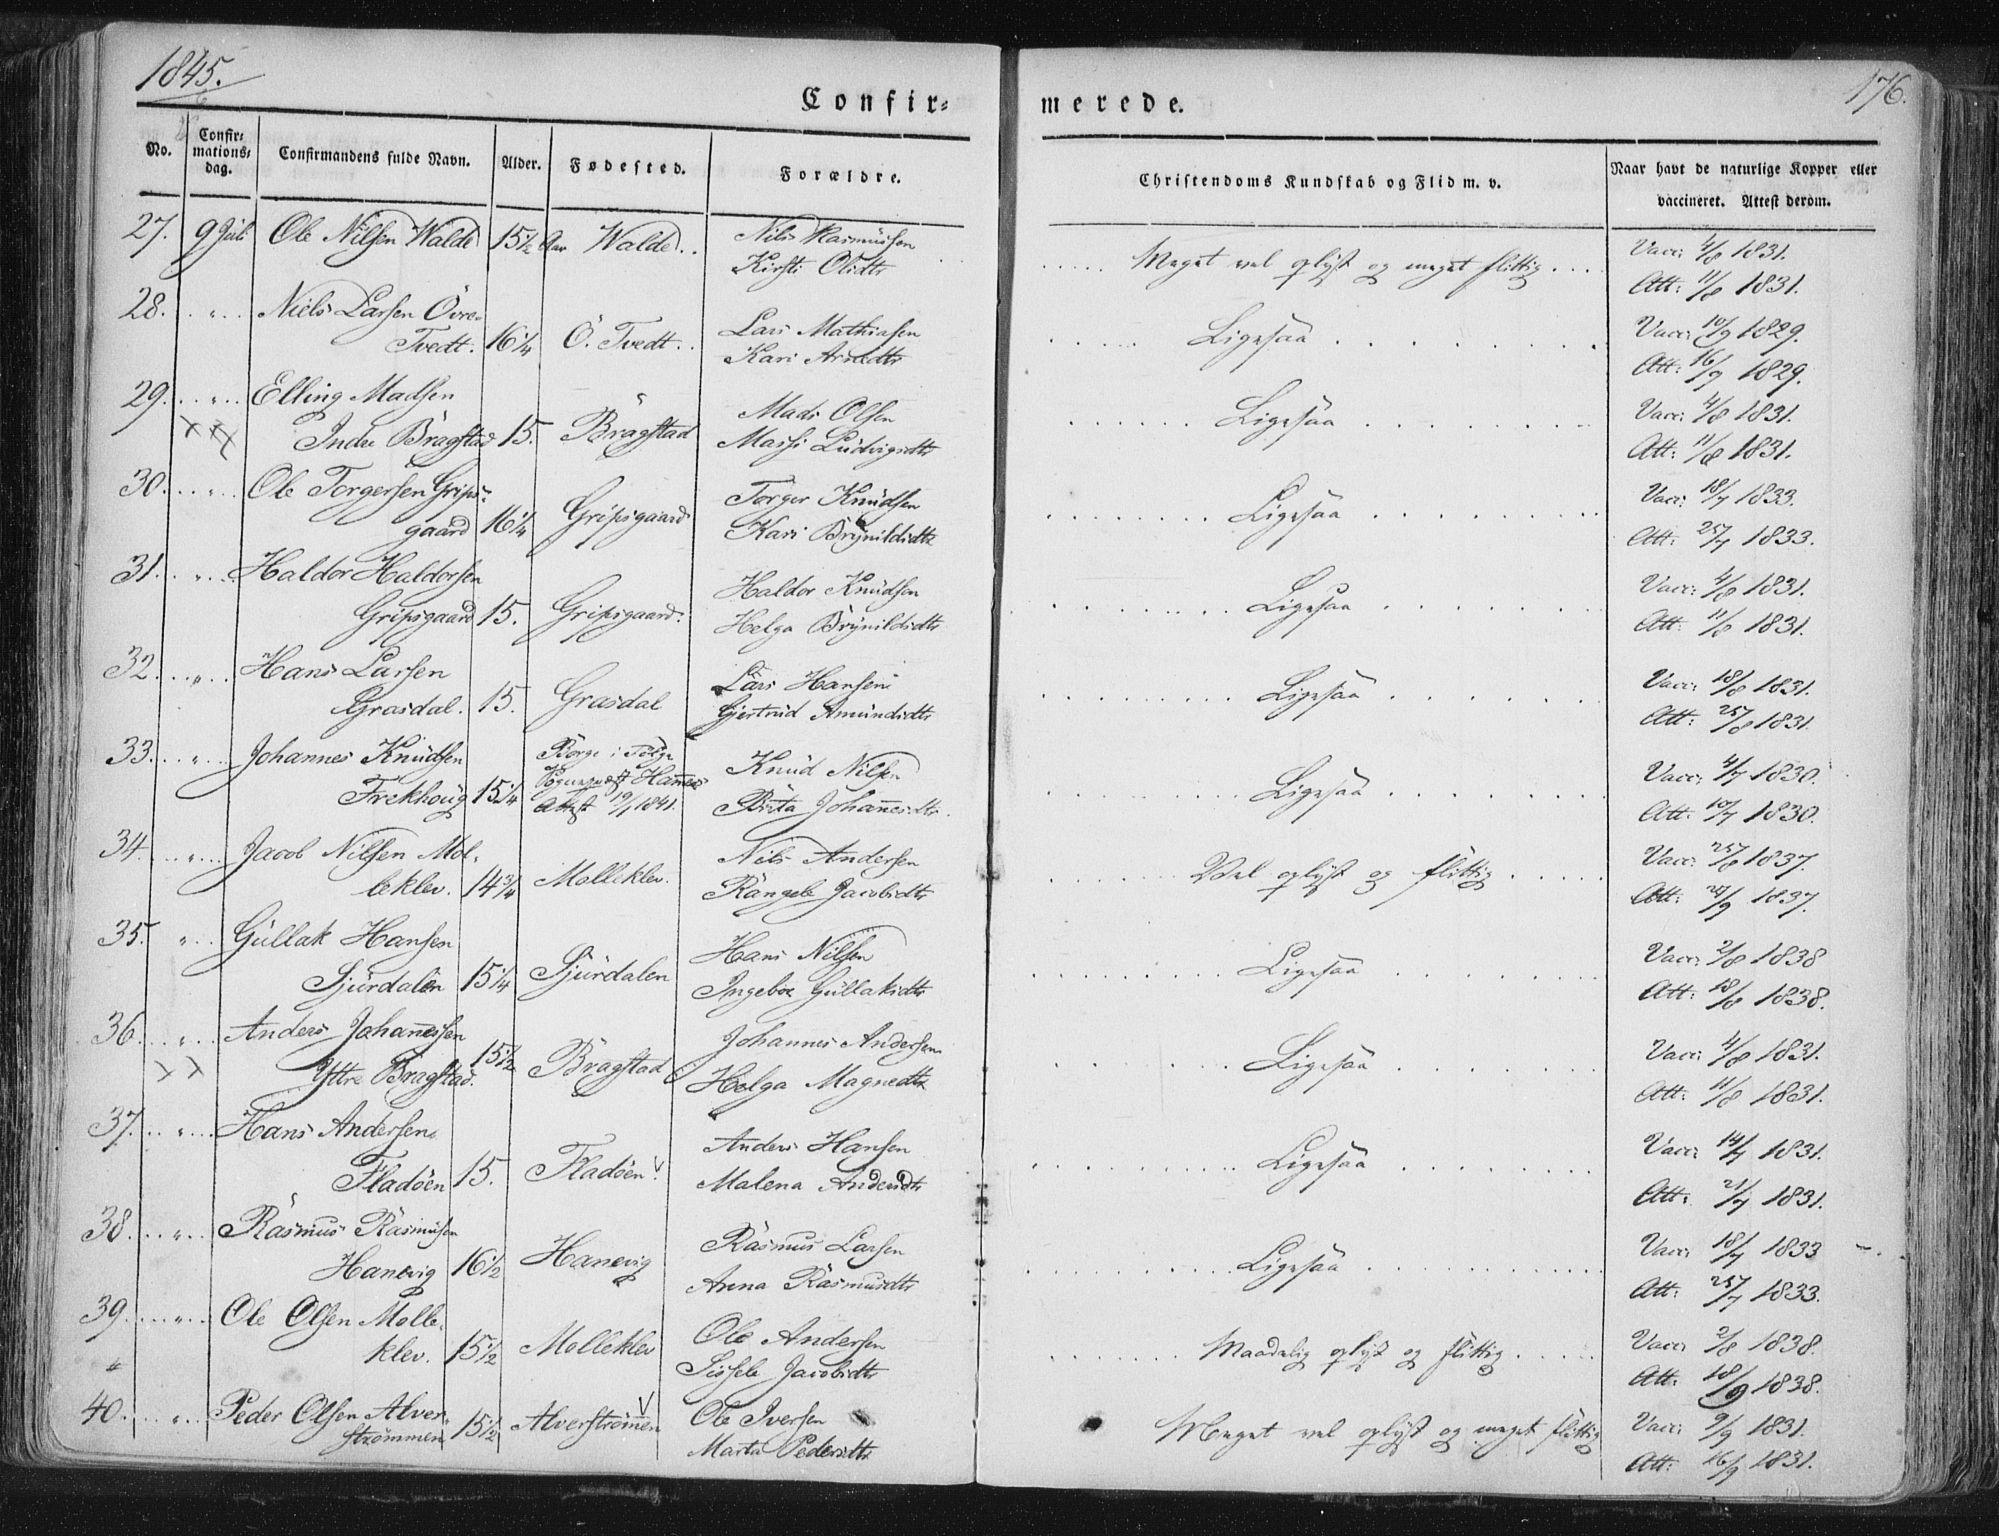 1845.
176.
Confir-
merede.
No.
Confir-
mations-
dag.
Confirmandens fulde Navn.
Alder.
Fødested.
Forældre.
Christendoms Kundskab og Flid m. v.
Naar havt de naturlige Kopper eller
vaccineret. Attest derom.
27. 9 Juli Ole Nilsen Walde 15½ Aar Walde. Nils Rasmussen
Kirsti Olsdtr
Meget vel oplyst og meget flittig
Vacc: 4/8 1831.
Att: 11/8 1831.
28. " Niels Larsen Övre-
Tvedt. 16¼ Ö. Tvedt. Lars Mathiasen
Kari Arnedtr
Ligesaa
Vacc: 10/9 1829.
Att: 16/9 1829.
29. " Elling Madsen
Indre Bragstad 15. Bragstad Mads Olsen
Massi Ludvigsdtr
Ligesaa
Vacc: 4/8 1831.
Att: 11/8 1831.
30. " Ole Torgersen Grips-
gaard 16¼ Gripsgaard Torger Knudsen
Kari Brynildsdtr
Ligesaa
Vacc: 18/7 1833.
Att: 25/7 1833.
31. " Haldor Haldorsen
Gripsgaard 15. Gripsgaard. Haldor Knudsen
Helga Brynildsdtr
Ligesaa
Vacc: 4/8 1831.
Att: 11/8 1831.
32. " Hans Larsen
Grasdal. 15. Grasdal Lars Hansen
Gjertrud Amundsdtr
Ligesaa
Vacc: 18/8 1831.
Att: 25/8 1831.
33. " Johannes Knudsen
Frekhoug 15¼ Börge i
Hammers
Attest 19/1 1841.
Knud Nilsen
Brita Johannesdtr.
Ligesaa
Vacc: 4/7 1830.
Att: 10/7 1830.
34. " Jacob Nilsen Mol-
leklev. 14¾ Molleklev. Nils Andersen
Rangele Jacobsdtr
Vel oplyst og flittig
Vacc: 25/8 1837.
Att: /9 1837.
35. " Gullak Hansen
Sjurdalen 15¼ Sjurdalen Hans Nilsen
Ingebor Gullaksdtr
Ligesaa
Vacc: 2/8 1838
Att: 18/8 1838.
36. " Anders Johannessen
Yttre Bragstad. 15½ Bragstad Johannes Andersen
Helga Magnedtr
Ligesaa
Vacc: 4/8 1831.
Att: 11/8 1831.
37. " Hans Andersen
Fladöen 15. Fladöen. Anders Hansen
Malena Andersdtr
Ligesaa
Vacc: 14/7 1831.
Att: 21/7 1831.
38. " Rasmus Rasmusen
Hanevig 16½ Hanevig Rasmus Larsen
Anna Rasmusdtr
Ligesaa
Vacc: 18/7 1833
Att: 25/7 1833.
39. " Ole Olsen Molle-
klev. 15½ Molleklev Ole Andersen
Sissele Jacobsdtr
Maadelig oplyst og flittig
Vacc: 2/8 1838.
Att: 18/9 1838.
40. " Peder Olsen Alver-
strömmen 15½ Alverströmmen Ole Iversen
Marta Pedersdtr
Meget vel oplyst og meget flittig
Vacc: 9/9 1831.
Att: 16/9 1831.